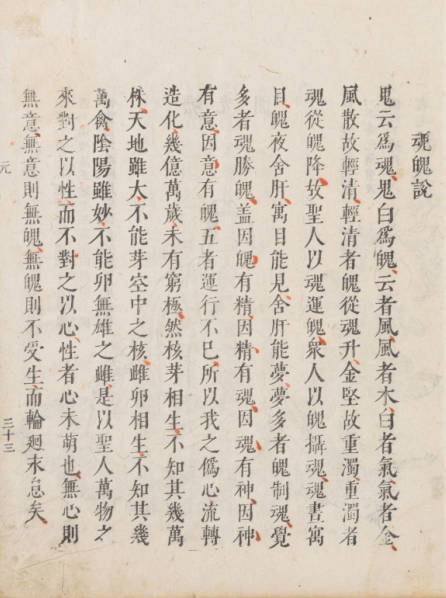 魂魄說
鬼云爲魂鬼白爲魄云者風風者木白者氣氣者金
風散故輕清輕清者魄從魂升金堅故重濁重濁者
魂從魄降故聖人以魂運魄衆人以魄攝魂魂晝寓
目魄夜舍肝寓目能見舍肝能夢夢多者魄制魂覺
多者魂勝魄盖因魄有精因精有魂因魂有神因神
有意因意有魄五者運行不已所以我之僞心流轉
造化幾億萬歲未有窮極然核芽相生不知其幾萬
株天地雖大不能芽空中之核雌卵相生不知其幾
萬禽陰陽雖妙不能卵無雄之雌是以聖人萬物之
來對之以性而不對之以心性者心未萌也無心則
無意無意則無魄無魄則不受生而輪廻末息矣
元
三十三